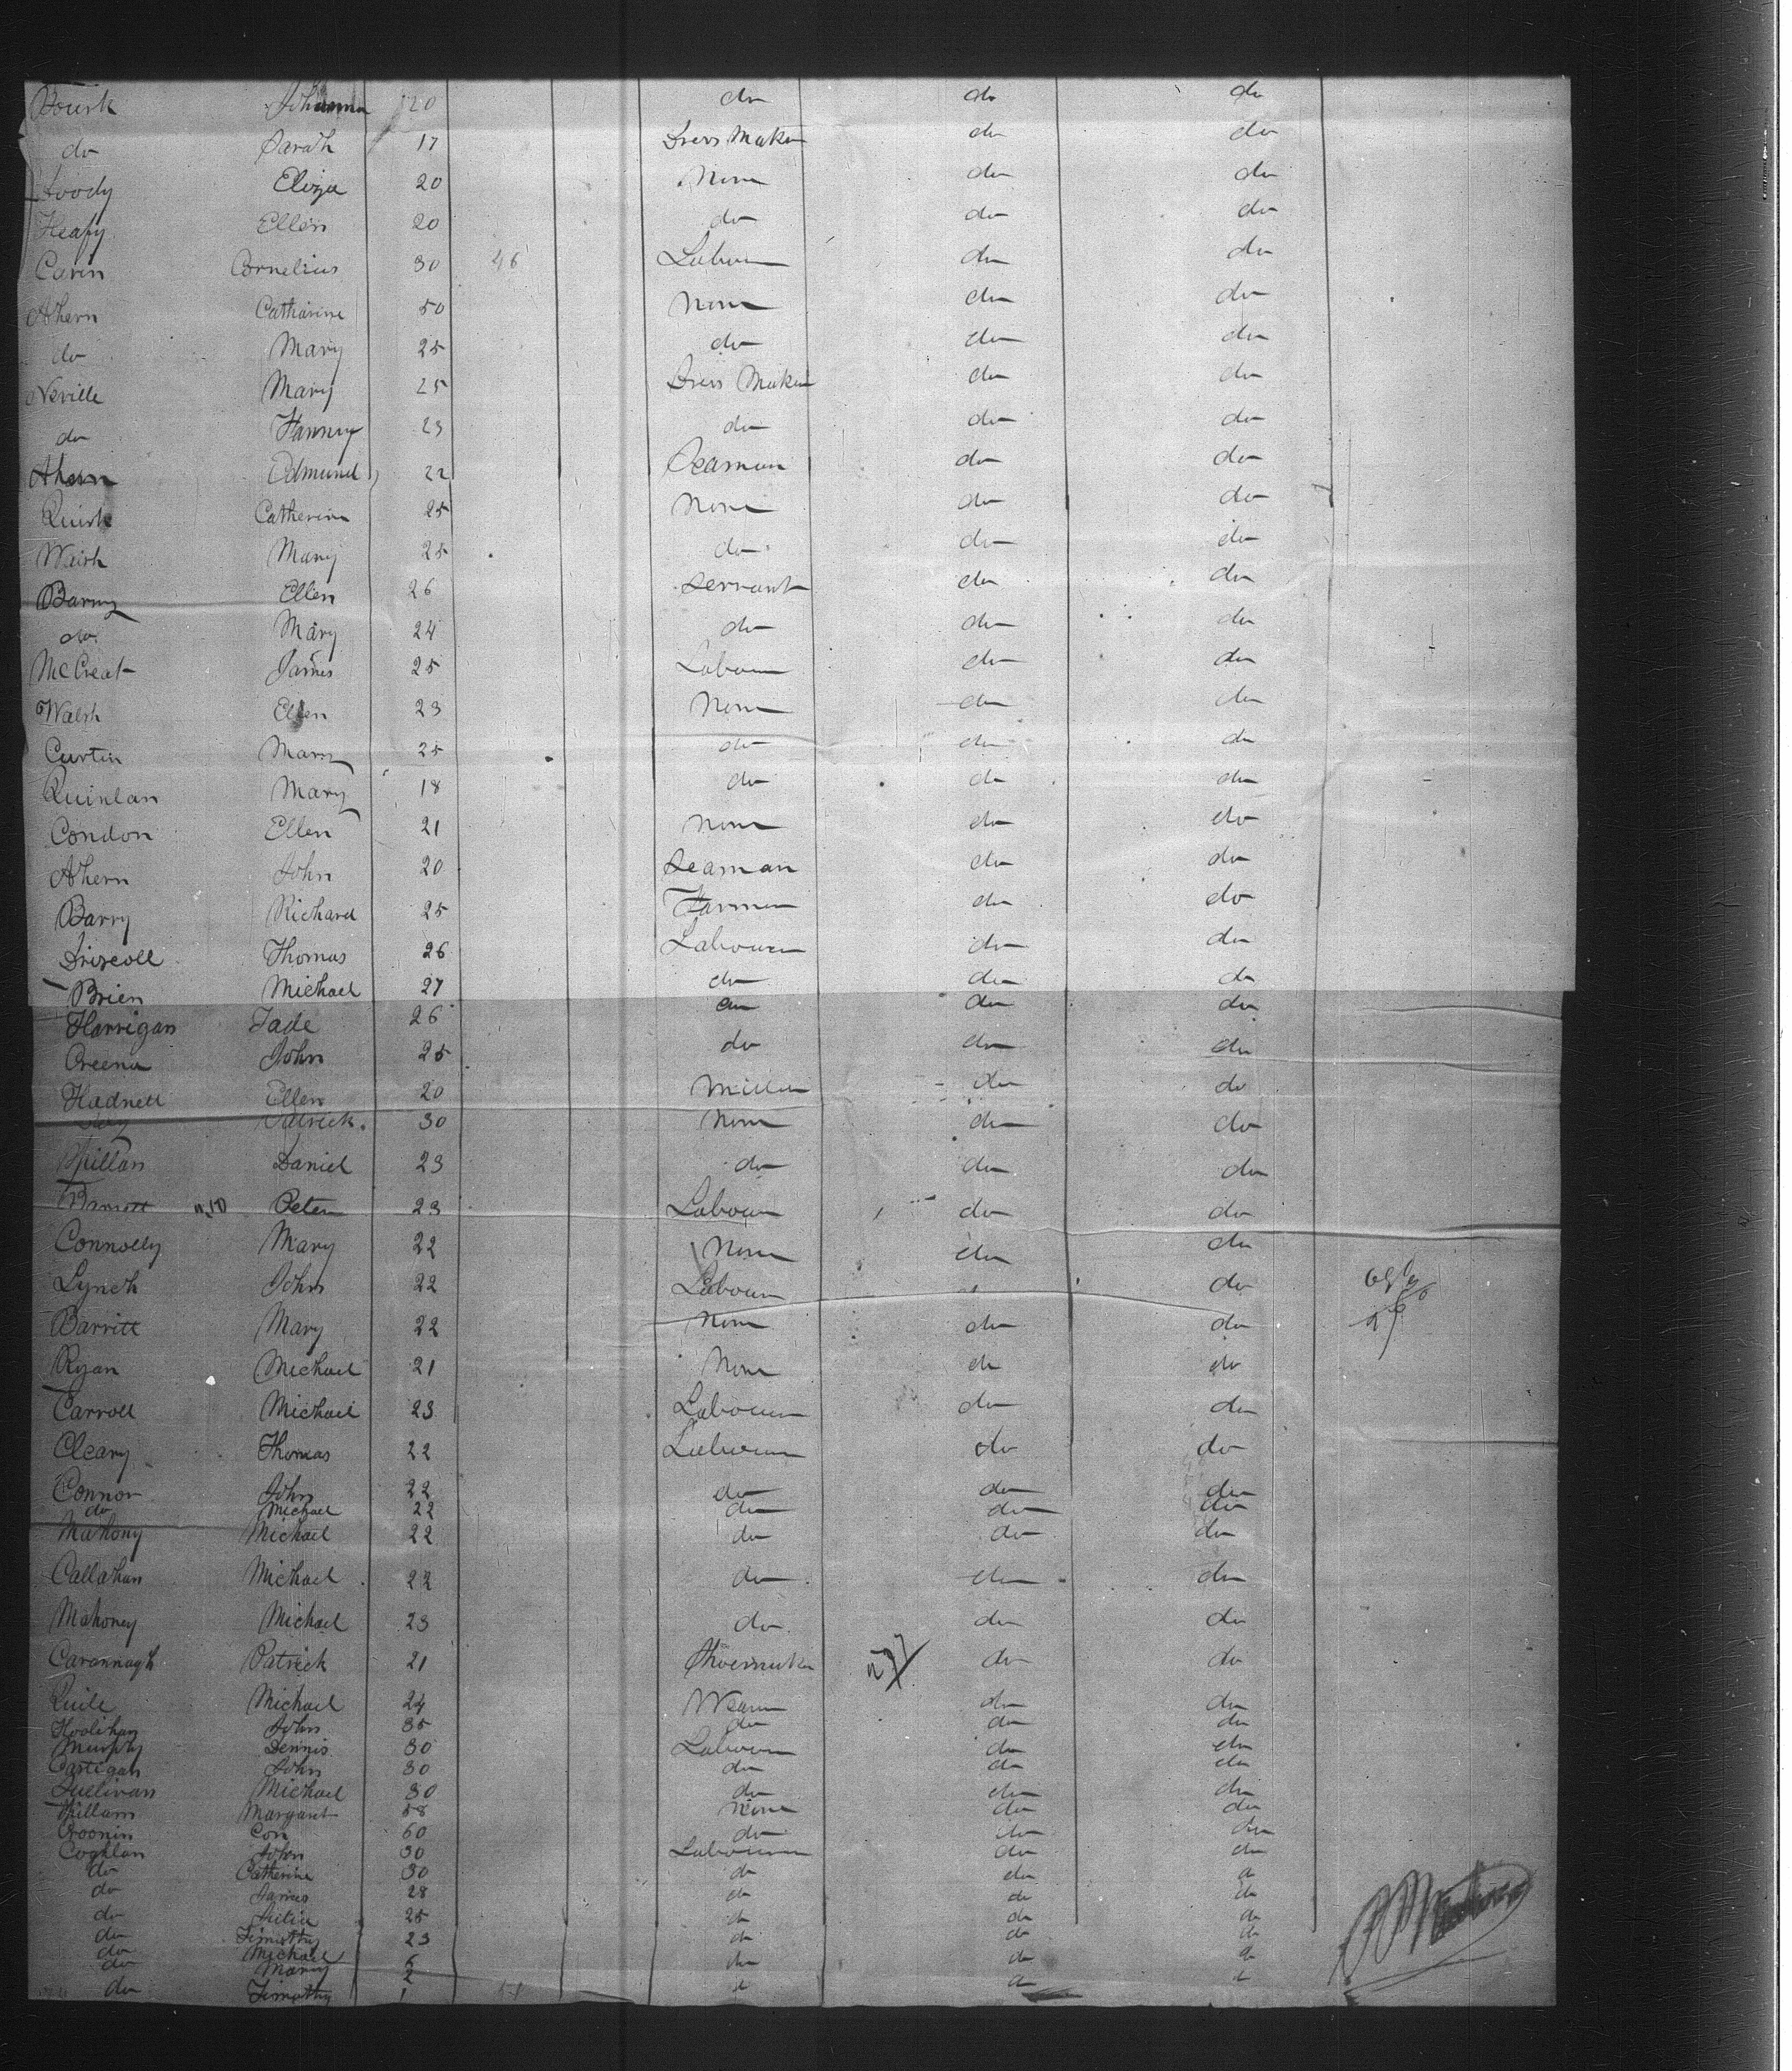 Bourk Johanna 20 do do do
do Sarah 17 Dress Maker do do
Eliza 20 None do do
Heafy Ellen 20 do do do
Cavin Cornelius 30 46 Labourer do do
Ahern Catharine 50 None do do
do Mary 25 do do do
Neville Mary 25 Dress Maker do do
do Hanny 23 do do do
Ahern Edmund 22 Seaman do do
Quirk Catherine 25 None do do
Walsh Mary 25 do do do
Barry Ellen 26 Servant do do
do Mary 24 do do do
McCreat James 25 Labourer do do
Walsh Ellen 23 None do do
Curtin Mary 25 do do do
Quinlan Mary 18 do do do
Condon Ellen 21 None do do
Ahern John 20 Seaman do do
Barry Richard 25 Farmer do do
Driscoll Thomas 26 Labourer do do
Brien Michael 27 do do do
Harrigan Jade 26 do do do
Creena John 25 do do do
Hadnett Ellen 20 Miller do do
Patrick 30 None do do
Daniel 23 do do do
Peter 23 Labourer do do
Connolly Mary 22 None do do
Lynch John 22 Labourer do do
Barritt Mary 22 None do do
Ryan Michael 21 None do do
Carroll Michael 23 Labourer do do
Cleary Thomas 22 Labourer do do
Connor John 22 do do do
do Michael 22 do do do
Mahony Michael 22 do do do
Callahan Michael 22 do do do
Mahoney Michael 23 do do do
Cavannagh Patrick 21 Shoemaker do do
Michael 24 do do
Hoolihan John 35 do do do
Murphy Dennis 30 Labourer do do
Castigan John 30 do do do
Sullivan Michael 30 do do do
Margaret 58 None do do
Croonin Con 60 do do do
Coghlan John 30 Labourer do do
do Catherine 30 do do do
do James 28 do do do
do Julia 25 do do do
do Timothy 23 do do do
do Michael 6 do do do
do Mary 2
do Timothy 1